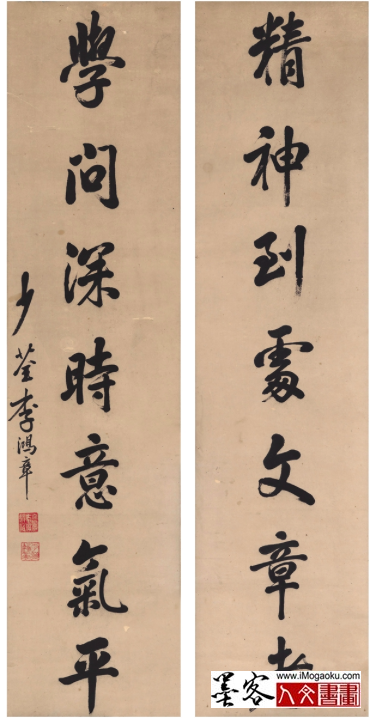 精神到處文章老
學問深時意氣平
少荃李鴻章
墨客
www.iMogaoku.com
人文書畫